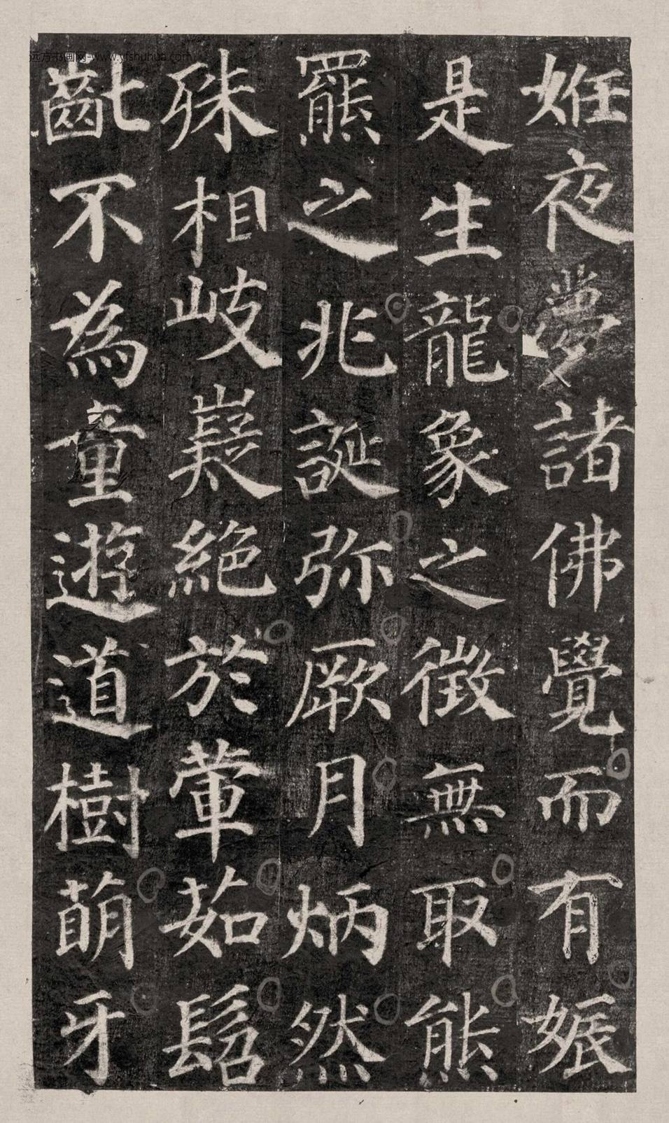 姙夜夢諸佛覺而有娠
是生龍象之徵無取熊
羆之兆誕弥厥月炳然
殊相岐嶷絕於葷茹髫
齔不為童遊道樹萌牙